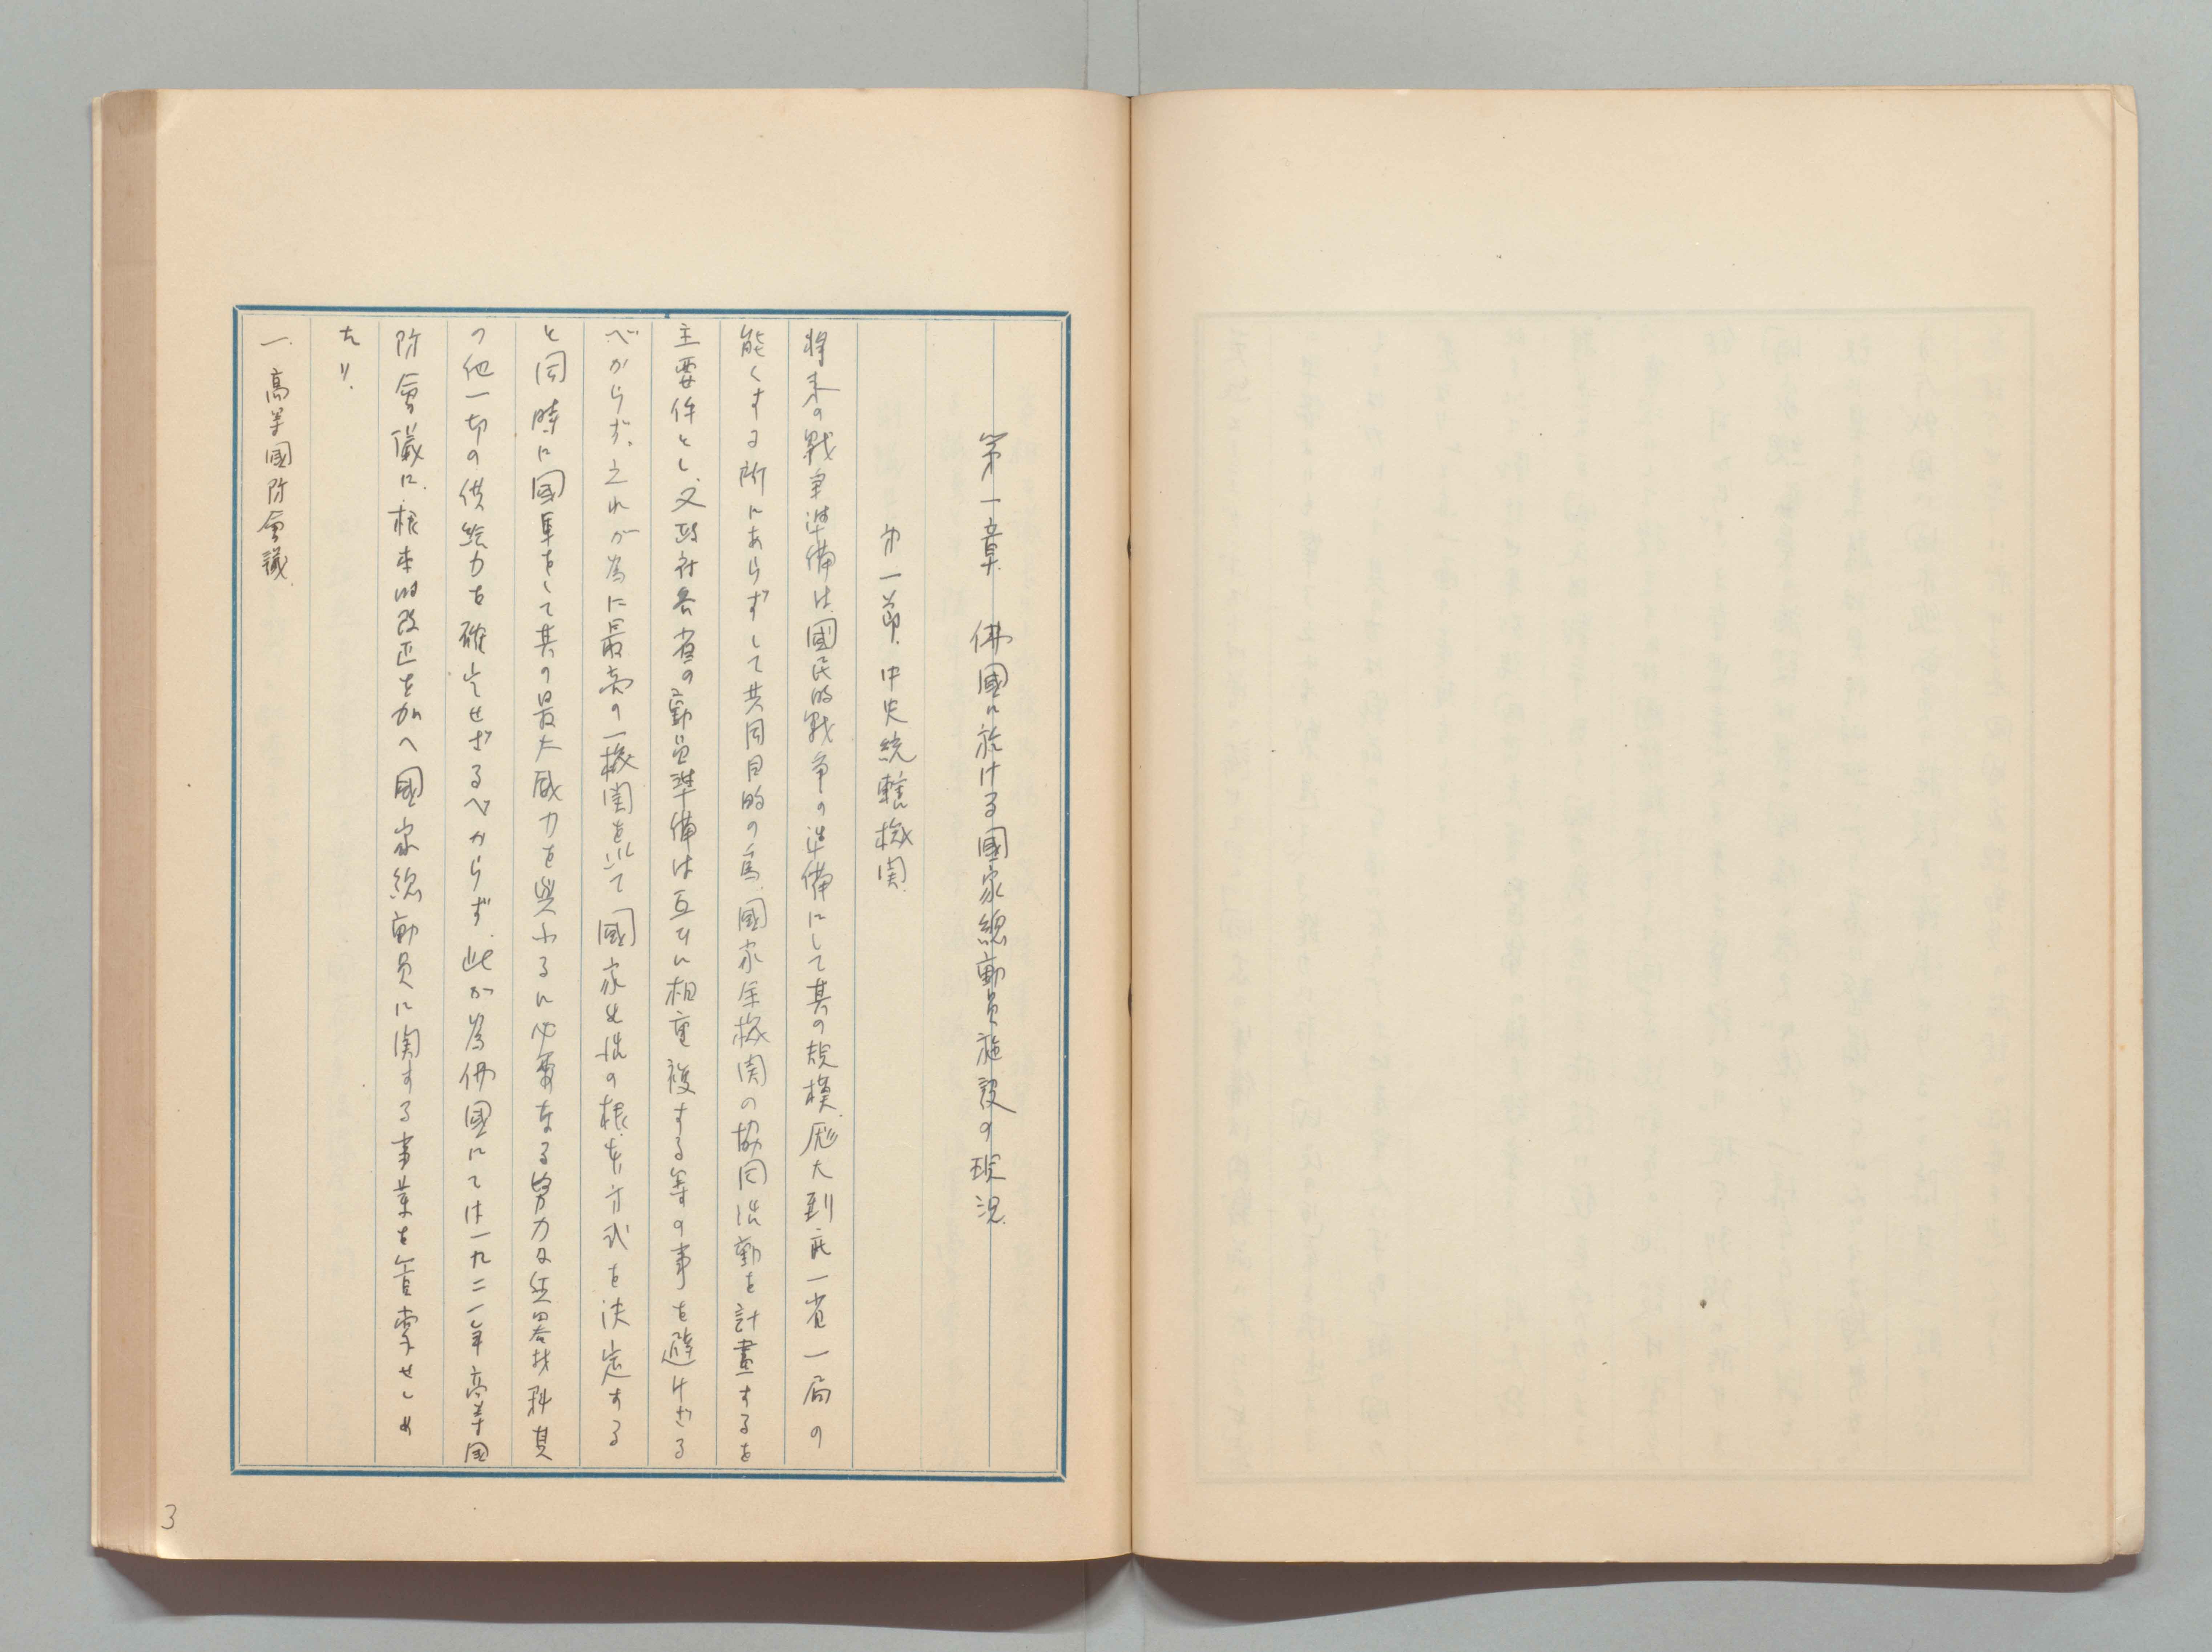 第一章 佛國に於ける國家總動員施設の現況
第一節 中央統轄機関
将来の戰争準備は國民的戰争の準備にして其の規模厖大到底一省一局の
能くする所にあらずして共同目的の為國家全機関の協同活動を計畫するを
主要件とし又政社各省の動員準備は互ひに相重複する等の事を避けざる
べからず。之れが為に最高の一機関を以て國家生活の根本方式を決定する
と同時に國軍をして其の最大威力を與ふるに必要なる努力及兵器材料其
の他一切の供給力を確定せざるべからず。此が為佛國にては一九二一年高等國
防會議に根本的改正を加へ國家総動員に関する事業を管掌せしめ
たり。
一、高等國防會議
3